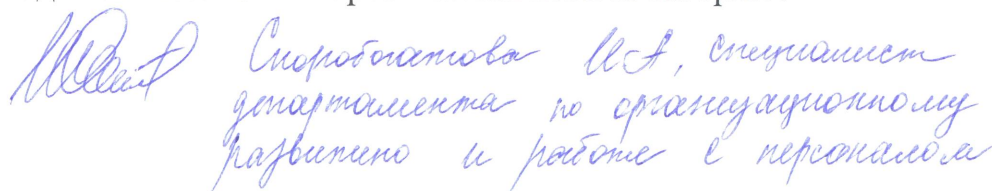 Скоробогатова И.А, специалист
департамента по организационному
развитию и работе с персоналом